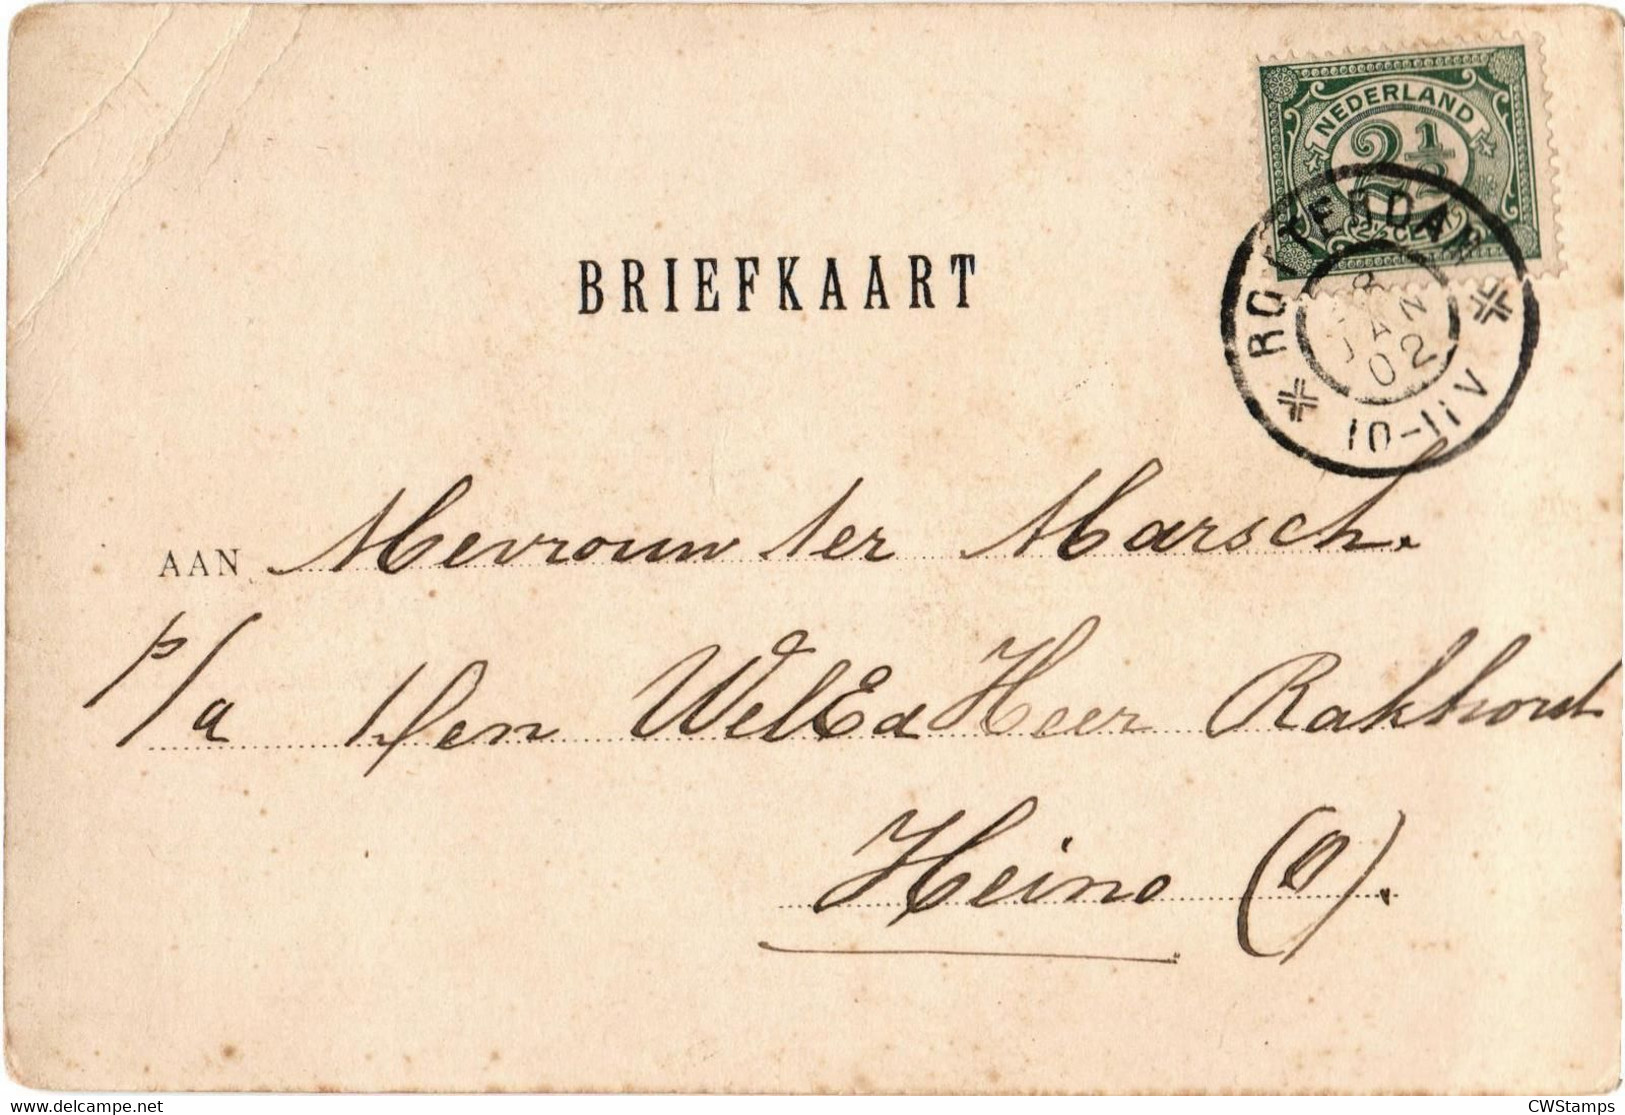 NEDERLAND
2 1/2
2½ CENT
ROTTERDAM
8
JAN
02
10-11V
BRIEFKAART
AAN Mevrouw ter Marsch.
p/a Den WelEd Heer Rakhorst
Heino (O).
CWStamps